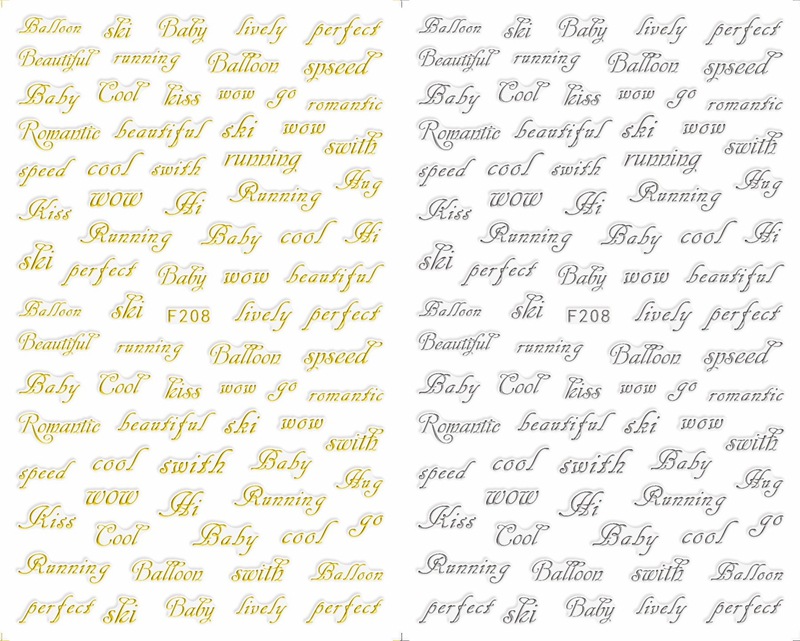 Balloon ski Baby lively perfect
Beautiful running Balloon spseed
Baby Cool kiss wow go romantic
Romantic beautiful ski wow swith
speed cool swith running Hug
Kiss wow Hi Running
Running Baby cool Hi
ski perfect Baby wow beautiful
Balloon ski F208 lively perfect
Beautiful running Balloon spseed
Baby Cool kiss wow go romantic
Romantic beautiful ski wow swith
speed cool swith Baby Hug
Kiss wow Hi Running
Cool Baby cool go
Running Balloon swith Balloon
perfect ski Baby lively perfect
Balloon ski Baby lively perfect
Beautiful running Balloon spseed
Baby Cool kiss wow go romantic
Romantic beautiful ski wow swith
speed cool swith running Hug
Kiss wow Hi Running
Running Baby cool Hi
ski perfect Baby wow beautiful
Balloon ski F208 lively perfect
Beautiful running Balloon spseed
Baby Cool kiss wow go romantic
Romantic beautiful ski wow swith
speed cool swith Baby Hug
Kiss wow Hi Running
Cool Baby cool go
Running Balloon swith Balloon
perfect ski Baby lively perfect